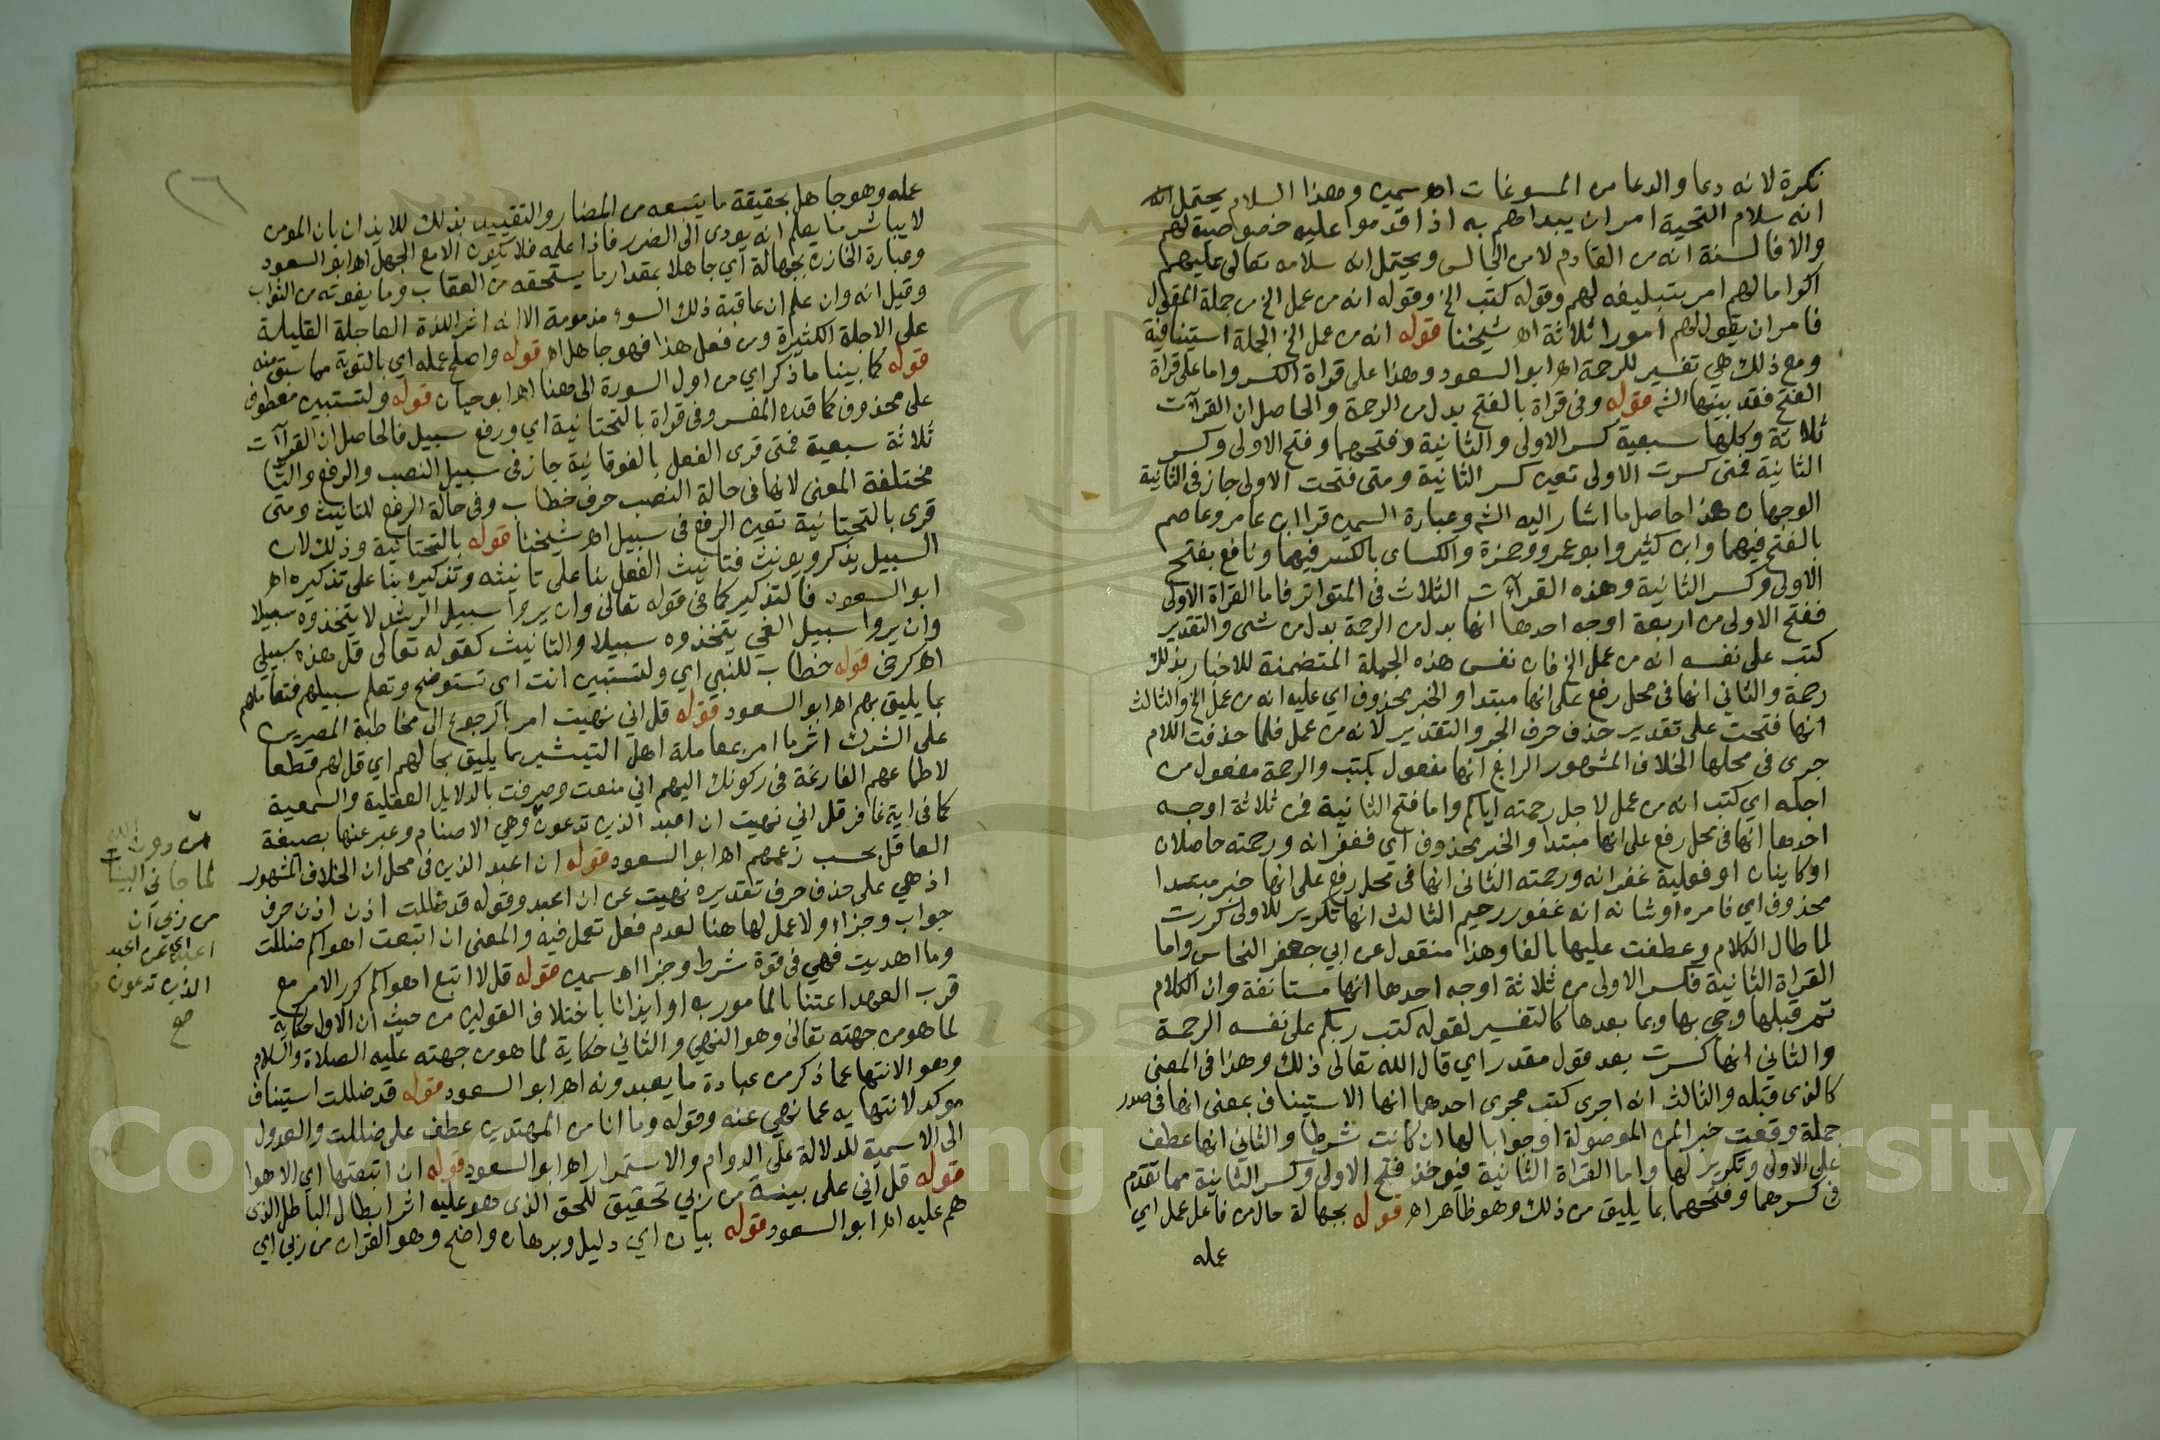 نكرة لانه دعا والدعا من المسوغات اهـ سمين وهذا السلام يحتمل انه
انه سلام التحية امر ان يبداهم به اذا قدموا عليه خصوصية لهم
والا فالسنة انه من القادم لا من الجالس ويحتمل انه سلامه تعالى عليهم
اكراما لهم امر بتبليغه لهم وقوله كتب الخ وقوله انه من عمل الخ من جملة المقول
فامر ان يقول لهم امورا ثلاثة اهـ شيخنا قوله انه من عمل الخ الجملة استينافية
ومع ذلك هي تفسير للرحمة اهـ ابو السعود وهذا على قراة الكسر واما على قراة
الفتح فقد بينها الش قوله وفى قراة بالفتح بدل من الرحمة والحاصل ان القرآت
ثلاثة وكلها سبعية كسر الاولى والثانية وفتحهما وفتح الاولى وكسر
الثانية فمتى كسرت الاولى تعين كسر الثانية ومتى فتحت الاولى جاز فى الثانية
الوجهان هذا حاصل ما اشار اليه الش وعبارة السمين قرا ابن عامر وعاصم
بالفتح فيهما وابن كثير وابو عمرو وحمزة والكساى بالكسر فيهما ونافع بفتح
الاولى وكسر الثانية وهذه القرآت الثلاث فى المتواتر فاما القراة الاولى
ففتح الاولى من اربعة اوجه احدها انها بدل من الرحمة بدل من شى والتقدير
كتب على نفسه انه من عمل الخ فان نفس هذه الجملة المتضمنة للاخبار بذلك
رحمة والثاني انها فى محل رفع على انها مبتدا والخبر محذوف اي عليه انه من عمل الخ والثالث
انها فتحت على تقدير حذف حرف الجر والتقدير لانه من عمل فلما حذفت اللام
جرى فى محلها الخلاف المشهور الرابع انها مفعول بكتب والرحمة مفعول من
اجله اي كتب انه من عمل لاجل رحمته اياكم واما فتح الثانية فمن ثلاثة اوجه
احدها انها فى محل رفع على انها مبتدا والخبر محذوف اي فغفرانه ورحمته حاصلان
او كاينان او فعليه غفرانه ورحمته الثانى انها فى محل رفع على انها خبر مبتدا
محذوف اي فامره او شانه انه غفور رحيم الثالث انها تكرير للاولى كررت
لما طال الكلام وعطفت عليها بالفا وهذا منقول عن ابي جعفر النحاس واما
القراة الثانية فكسر الاولى من ثلاثة اوجه احدها انها مستانفة وان الكلام
تم قبلها وجي بها وبما بعدها كالتفسير لقوله كتب ربكم على نفسه الرحمة
والثانى انها كسرت بعد قول مقدر اي قال الله تعالى ذلك وهذا فى المعنى
كالذى قبله والثالث انه اجرى كتب مجرى احدهما انها الاستيناف بمعنى انها فى صدر
جملة وقعت خبرا لمن الموصولة او جوابا لها ان كانت شرطا والثاني انها عطف
على الاولى وتكرير لها واما القراة الثانية فيوخذ فتح الاولى وكسر الثانية مما تقدم
فى كسرهما وفتحهما بما يليق من ذلك وهو ظاهر اهـ قوله بجهالة حال من فاعل عمل اي
عمله
٢٦
عمله وهو جاهل بحقيقة ما يتبعه من المضار والتقييد بذلك للايذان بان المومن
لا يباشر ما يعلم انه يودى الى الضرر فاذا علمه فلا يكون الا مع الجهل اهـ ابو السعود
وعبارة الخازن بجهالة اي جاهلا بمقدار ما يستحقه من العقاب وما يفوته من الثواب
وقيل انه وان علم ان عاقبة ذلك السوء مذمومة الا انه اثر اللذة العاجلة القليلة
على الاجلة الكثيرة ومن فعل هذا فهو جاهل اهـ قوله واصلح عمله اي بالتوبة مما سبق منه
قوله كما بينا ما ذكر اي من اول السورة الى هنا اهـ ابو حيان قوله ولتستبين معطوف
على محذوف كما قدره المفسر وفى قراة بالتحتانية اي ورفع سبيل فالحاصل ان القرآت
ثلاثة سبعية فمتى قرى الفعل بالفوقانية جاز فى سبيل النصب والرفع والتا
مختلفة المعنى لانها فى حالة النصب حرف خطاب وفى حالة الرفع للتانيث ومتى
قرى بالتحتانية تعين الرفع فى سبيل اهـ شيخنا قوله بالتحتانية وذلك لان
السبيل يذكر ويونث فتانيث الفعل بنا على تانيثه وتذكيره بنا على تذكيره اهـ
ابو السعود فالتذكير كما فى قوله تعالى وان يروا سبيل الرشد لا يتخذوه سبيلا
وان يروا سبيل الغي يتخذوه سبيلا والتانيث كقوله تعالى قل هذه سبيلي
اهـ كرخى قوله خطاب للنبي اي ولتستبين انت اي تستوضح وتعلم سبيلهم فتعاملهم
بما يليق بهم اهـ ابو السعود قوله قل اني نهيت امر بالرجوع الى مخاطبة المصرين
على الشرك اثر ما امر بمعاملة اهل التبشير بما يليق بحالهم اي قل لهم قطعا
لاطماعهم الفارغة فى ركونك اليهم اني منعت وصرفت بالدلايل العقلية والسمعية
كما فى اية غافر قل اني نهيت ان اعبد الذين تدعون وهي الاصنام وعبر عنها بصيغة
العاقل بحسب زعمهم اهـ ابو السعود قوله ان اعبد الذين فى محل ان الخلاف المشهور
اذ هي على حذف حرف تقديره نهيت عن ان اعبد وقوله قد ضللت اذن اذن حرف
جواب وجزاء ولا عمل لها هنا لعدم فعل تعمل فيه والمعنى ان اتبعت اهواكم ضللت
وما اهديت فهي فى قوة شرط وجزا اهـ سمين قوله قل لا اتبع اهواكم كرر الامر مع
قرب العهد اعتنا بالمامور به او ايذانا باختلاف القولين من حيث ان الاول حكاية
لما هو من جهته تعالى وهو النهي والثاني حكاية لما هو من جهته عليه الصلاة والسلام
وهو الانتها عما ذكر من عبادة ما يعبدونه اهـ ابو السعود قوله قد ضللت استيناف
موكد لانتهايه عما نهي عنه وقوله وما انا من المهتدين عطف على ضللت والعدول
الى الاسمية للدلالة على الدوام والاستمرار اهـ ابو السعود قوله ان اتبعتها اي الاهوا
قوله قل اني على بينة من ربي تحقيق للحق الذى هو عليه اثر ابطال الباطل الذى
هم عليه اهـ ابو السعود قوله بيان اي دليل وبرهان واضح وهو القران من ربي اي
من دون الله
لما جاني البينات
من ربي ان
اعبد اي عن اعبد
الذين تدعون
صح